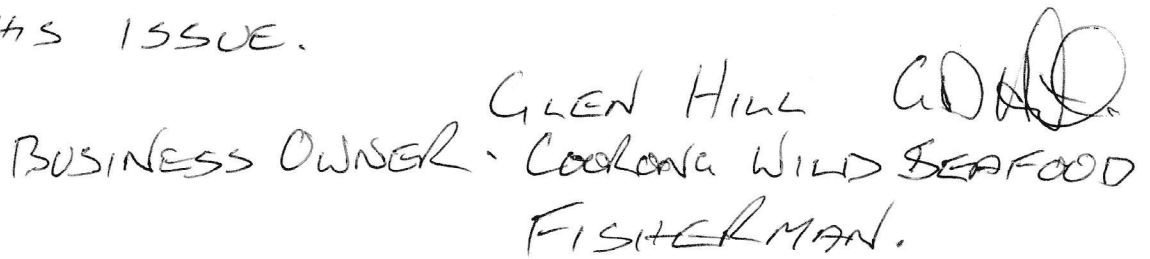 HS ISSUE.
GLEN HILL GDHill.
BUSINESS OWNER. COORONG WILD SEAFOOD
FISHERMAN.